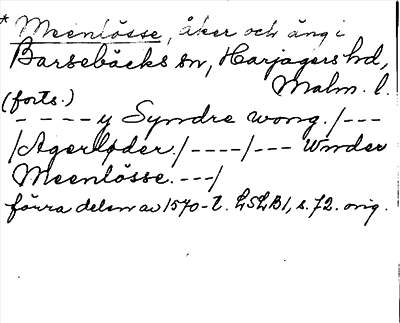 * Meenlösse, åker och äng i
Barsebäcks sn, Harjagers hd,
Malm. l.
(forts.)
- - - - y Syndre wong. /---
/Agerløder./----/--- Wnder
Meenlösse.---/
förra delen av 1570-t. LSLB1, s. 72. orig.